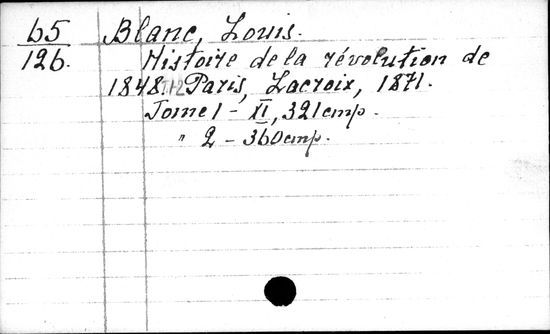 65 Blanc, Louis.
126. Histoire de la révolution de
1848. T.1-2 Paris, Lacroix, 1871.
Tome 1 - XI, 321 стр.
" 2 - 360 стр.